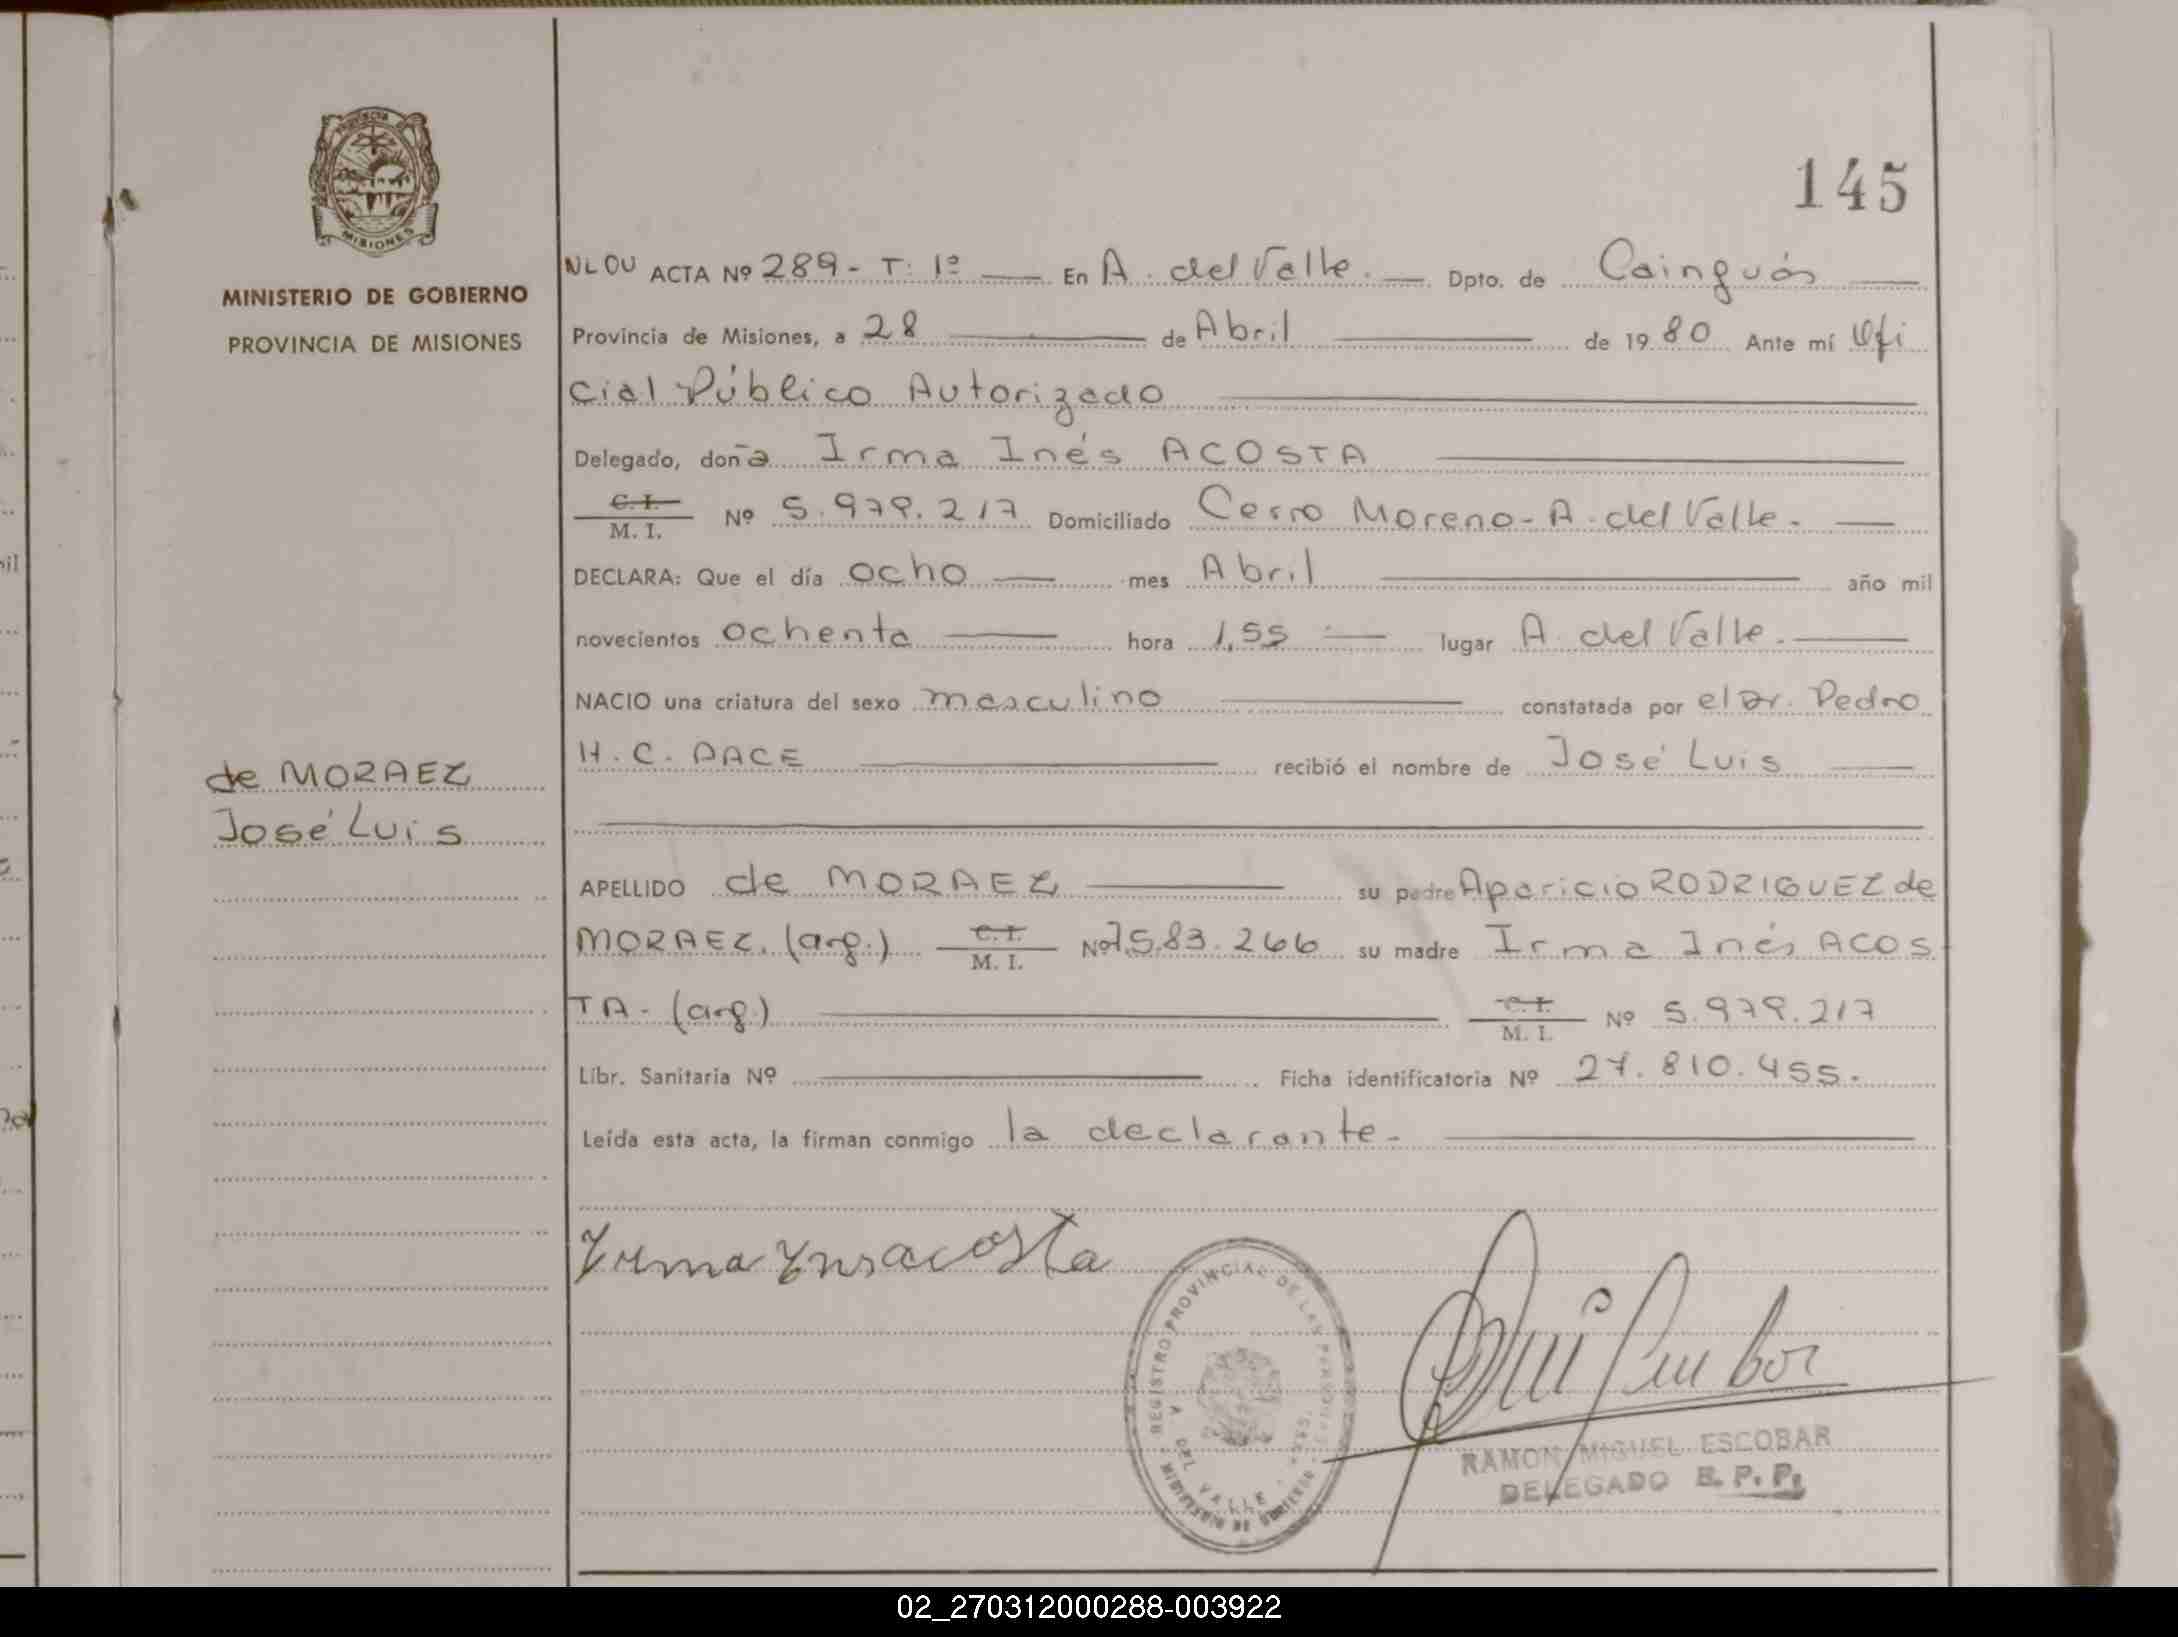 145
PROVINCIA
MISIONES
MINISTERIO DE GOBIERNO
PROVINCIA DE MISIONES
de MORAEZ
José Luis
NLOU ACTA Nº 289 - T: 1º En A. del Valle. Dpto. de Cainguás
Provincia de Misiones, a 28 de Abril de 1980 Ante mí Ofi
cial Público Autorizado
Delegado, doña Irma Inés ACOSTA
C. I.
M. I. Nº 5.979.217 Domiciliado Cerro Moreno - A. del Valle.
DECLARA: Que el día ocho mes Abril año mil
novecientos ochenta hora 1,55 lugar A. del Valle.
NACIO una criatura del sexo masculino constatada por el Dr. Pedro
H. C. PACE recibió el nombre de José Luis
APELLIDO de MORAEZ su padre Aparicio RODRIGUEZ de
MORAEZ. (arg.) C. I. M. I. Nº 7.583.266 su madre Irma Inés ACOS
TA - (arg.) C. I. M. I. Nº 5.979.217
Libr. Sanitaria Nº Ficha identificatoria Nº 27.810.455.
Leída esta acta, la firman conmigo la declarante.
Irma Ins acosta
REGISTRO PROVINCIAL DE LAS PERSONAS
A. DEL VALLE
MINISTERIO DE GOBIERNO
RAMON MIGUEL ESCOBAR
DELEGADO R. P. P.
02_270312000288-003922